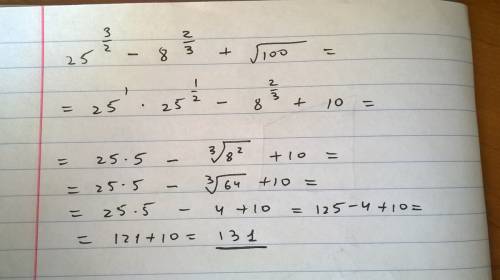 25^(3/2) - 8^(2/3) + √100 =
= 25^1 · 25^(1/2) - 8^(2/3) + 10 =
= 25·5 - ∛8² + 10 =
= 25·5 - ∛64 + 10 =
= 25·5 - 4 + 10 = 125 - 4 + 10 =
= 121 + 10 = 131